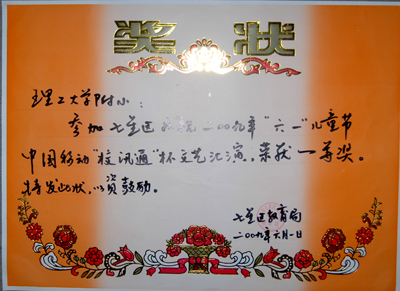 奖 状
理工大学附小：
参加七星区 二〇〇九年“六一”儿童节
中国移动“校讯通”杯文艺汇演，荣获一等奖。
特发此状，以资鼓励。
七星区教育局
二〇〇九年六月一日